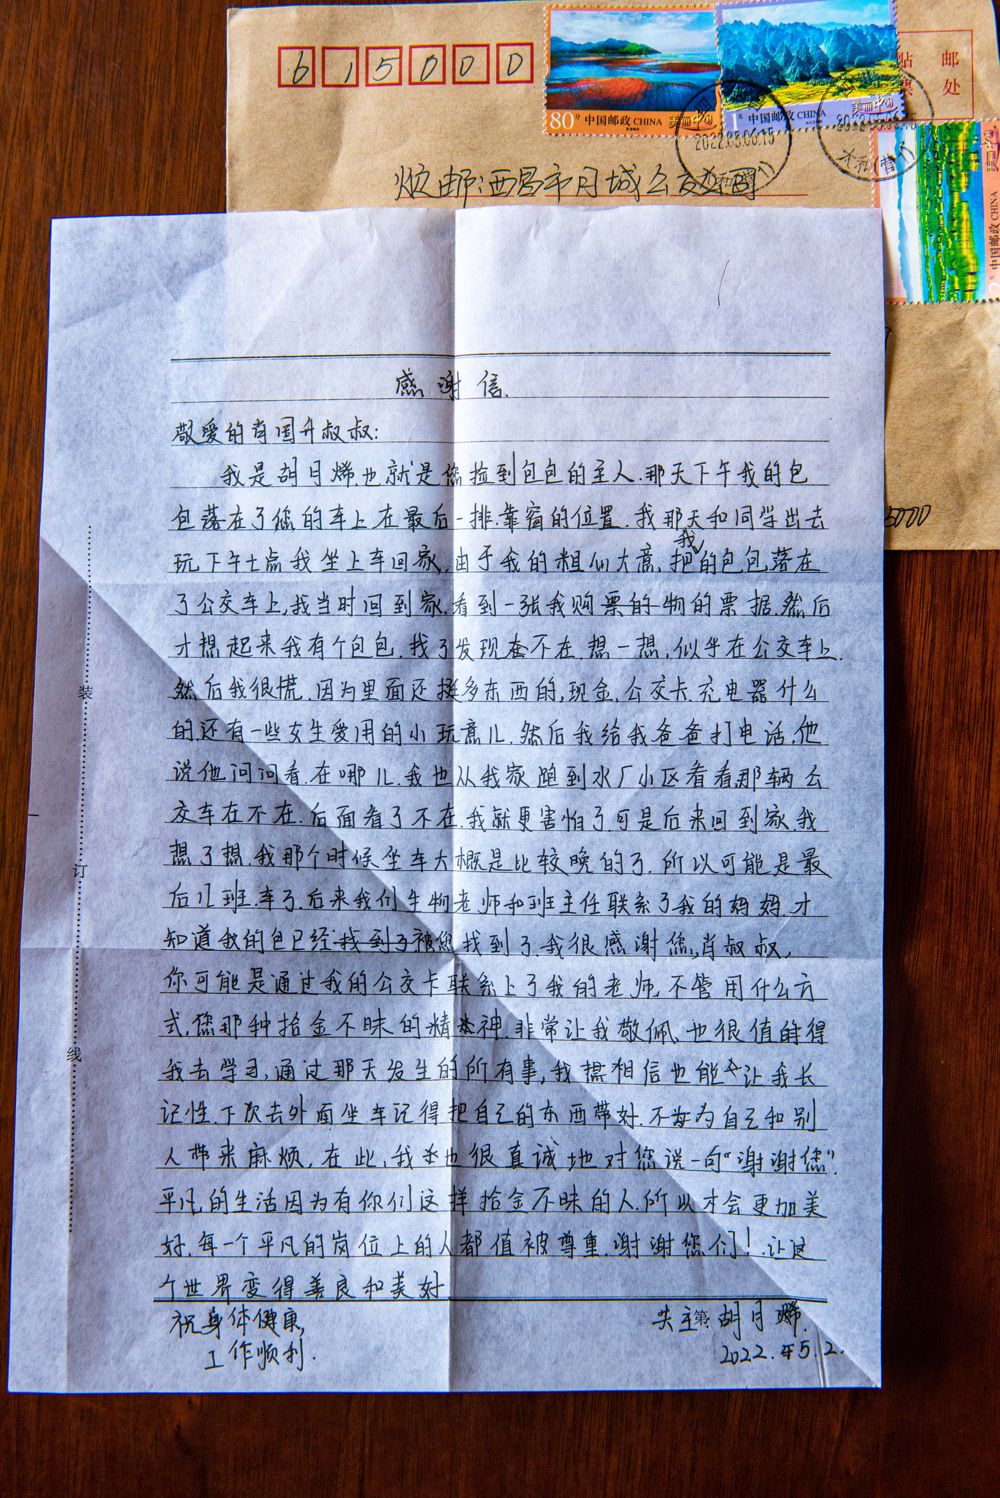 615000
贴 邮
票 处
80分 中国邮政 CHINA 美丽中国
1元 中国邮政 CHINA 美丽中国
中国邮政 CHINA
2022.05.06.15
烦邮:西昌市月城公交公司
感谢信.
敬爱的肖国升叔叔:
我是胡月烯也就是您捡到包包的主人.那天下午我的包
包落在了您的车上在最后一排.靠窗的位置.我那天和同学出去
玩下午七点我坐上车回家.由于我的粗心大意,把我的包包落在
了公交车上,我当时回到家.看到一张我购票的物的票据.然后
才想起来我有个包包.找了发现在不在.想一想,似乎在公交车上.
然后我很慌.因为里面还挺多东西的,现金.公交卡.充电器什么
的还有一些女生爱用的小玩意儿.然后我给我爸爸打电话,他
说他问问看在哪儿.我也从我家跑到水厂小区看看那辆公
交车在不在.后面看了不在.我就更害怕了.可是后来回到家.我
想了想.我那个时候坐车大概是比较晚的了.所以可能是最
后几班.车了.后来我们生物老师和班主任联系了我的妈妈.才
知道我的包已经找到了被您找到了.我很感谢您,肖叔叔,
你可能是通过我的公交卡联系上了我的老师,不管用什么方
式,您那种拾金不昧的精神.非常让我敬佩、也很值得
我去学习,通过那天发生的所有事,我想相信也能让我长
记性.下次去外面坐车记得把自己的东西带好.不为自己和别
人带来麻烦,在此,我也很真诚地对您说一句“谢谢您”.
平凡的生活因为有你们这样拾金不昧的人.所以才会更加美
好.每一个平凡的岗位上的人都值被尊重.谢谢您们!.让这
个世界变得善良和美好.
祝身体健康, 失主 胡月烯.
工作顺利. 2022.年5.2.
装
订
线